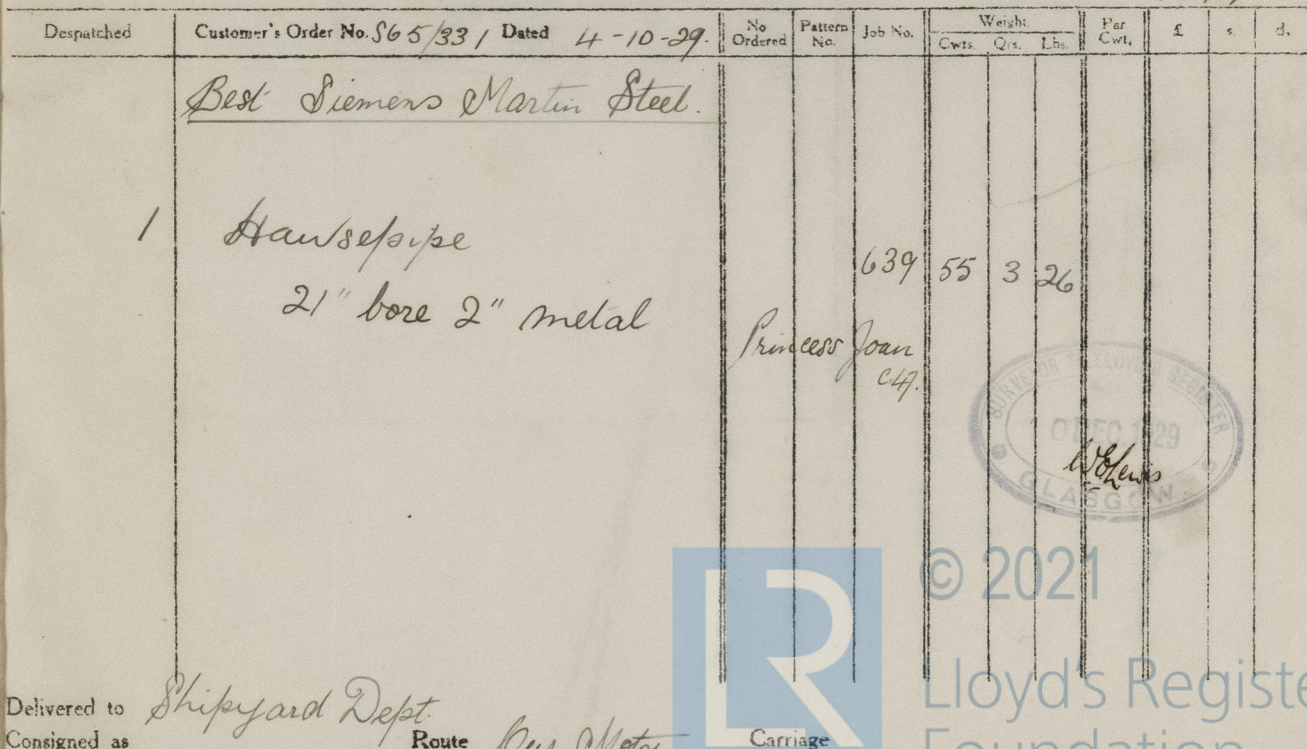 Despatched Customer's Order No. S65/331 Dated 4-10-29. No Ordered Pattern No. Job No. Weight Cwts. Qrs. Lbs. Per Cwt. £ s. d.
Best Siemens Martin Steel.
1 Hawsepipe
639 55 3 26
21" bore 2" metal
Princess Joan
SURVEYOR TO LLOYD'S REGISTER
10 DEC. 1929
GLASGOW
© 2021
LR
Lloyd's Registe
Foundation
Delivered to Shipyard Dept.
Consigned as Route Our Motor Carriage